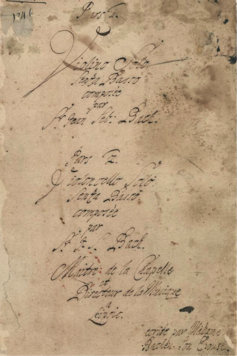 Pars 1.
Violino Solo
Senza Basso
composée
par
Sr. Joh. Seb. Bach.
Pars 2.
Violoncello Solo.
Senza Basso.
composée
par
Sr. J. S. Bach.
Maitre de la Chapelle
et
Directeur de la Musique
a
Leipsic.
ecrite par Madame
Bachen. Son Epouse.